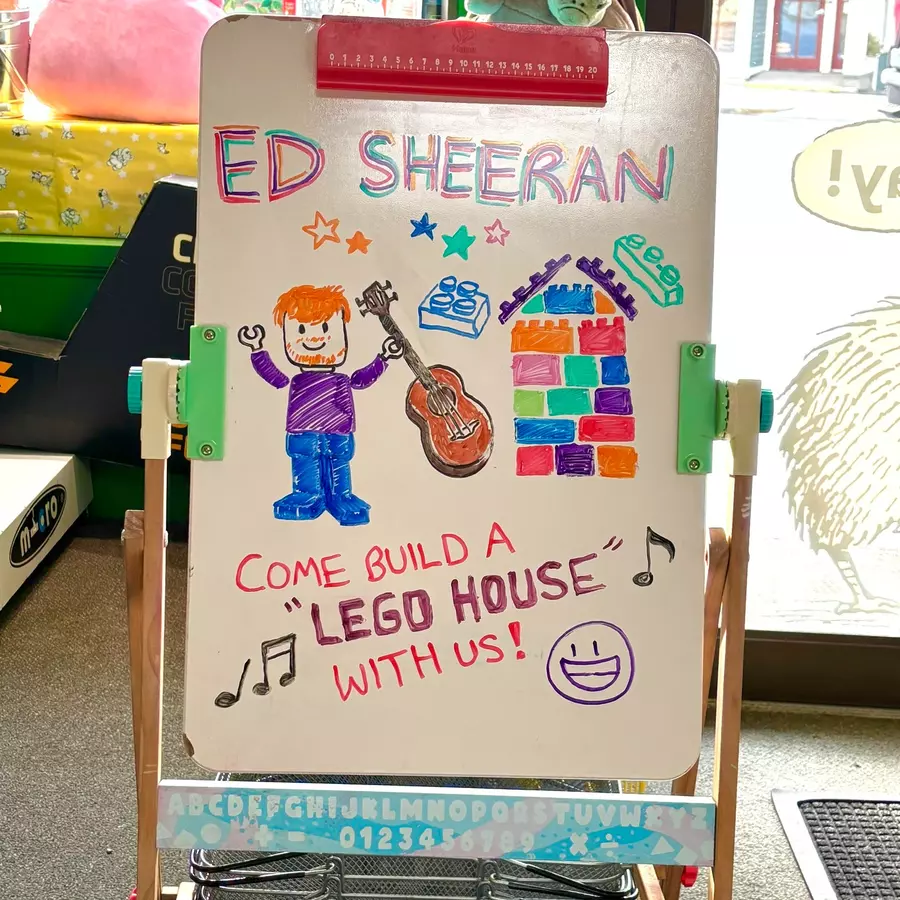 Hape
0 1 2 3 4 5 6 7 8 9 10 11 12 13 14 15 16 17 18 19 20
ED SHEERAN
COME BUILD A
"LEGO HOUSE"
WITH US!
ay!
micro
ABCDEFGHIJKLMNOPQRSTUVWXYZ
+ - 0123456789 × ÷